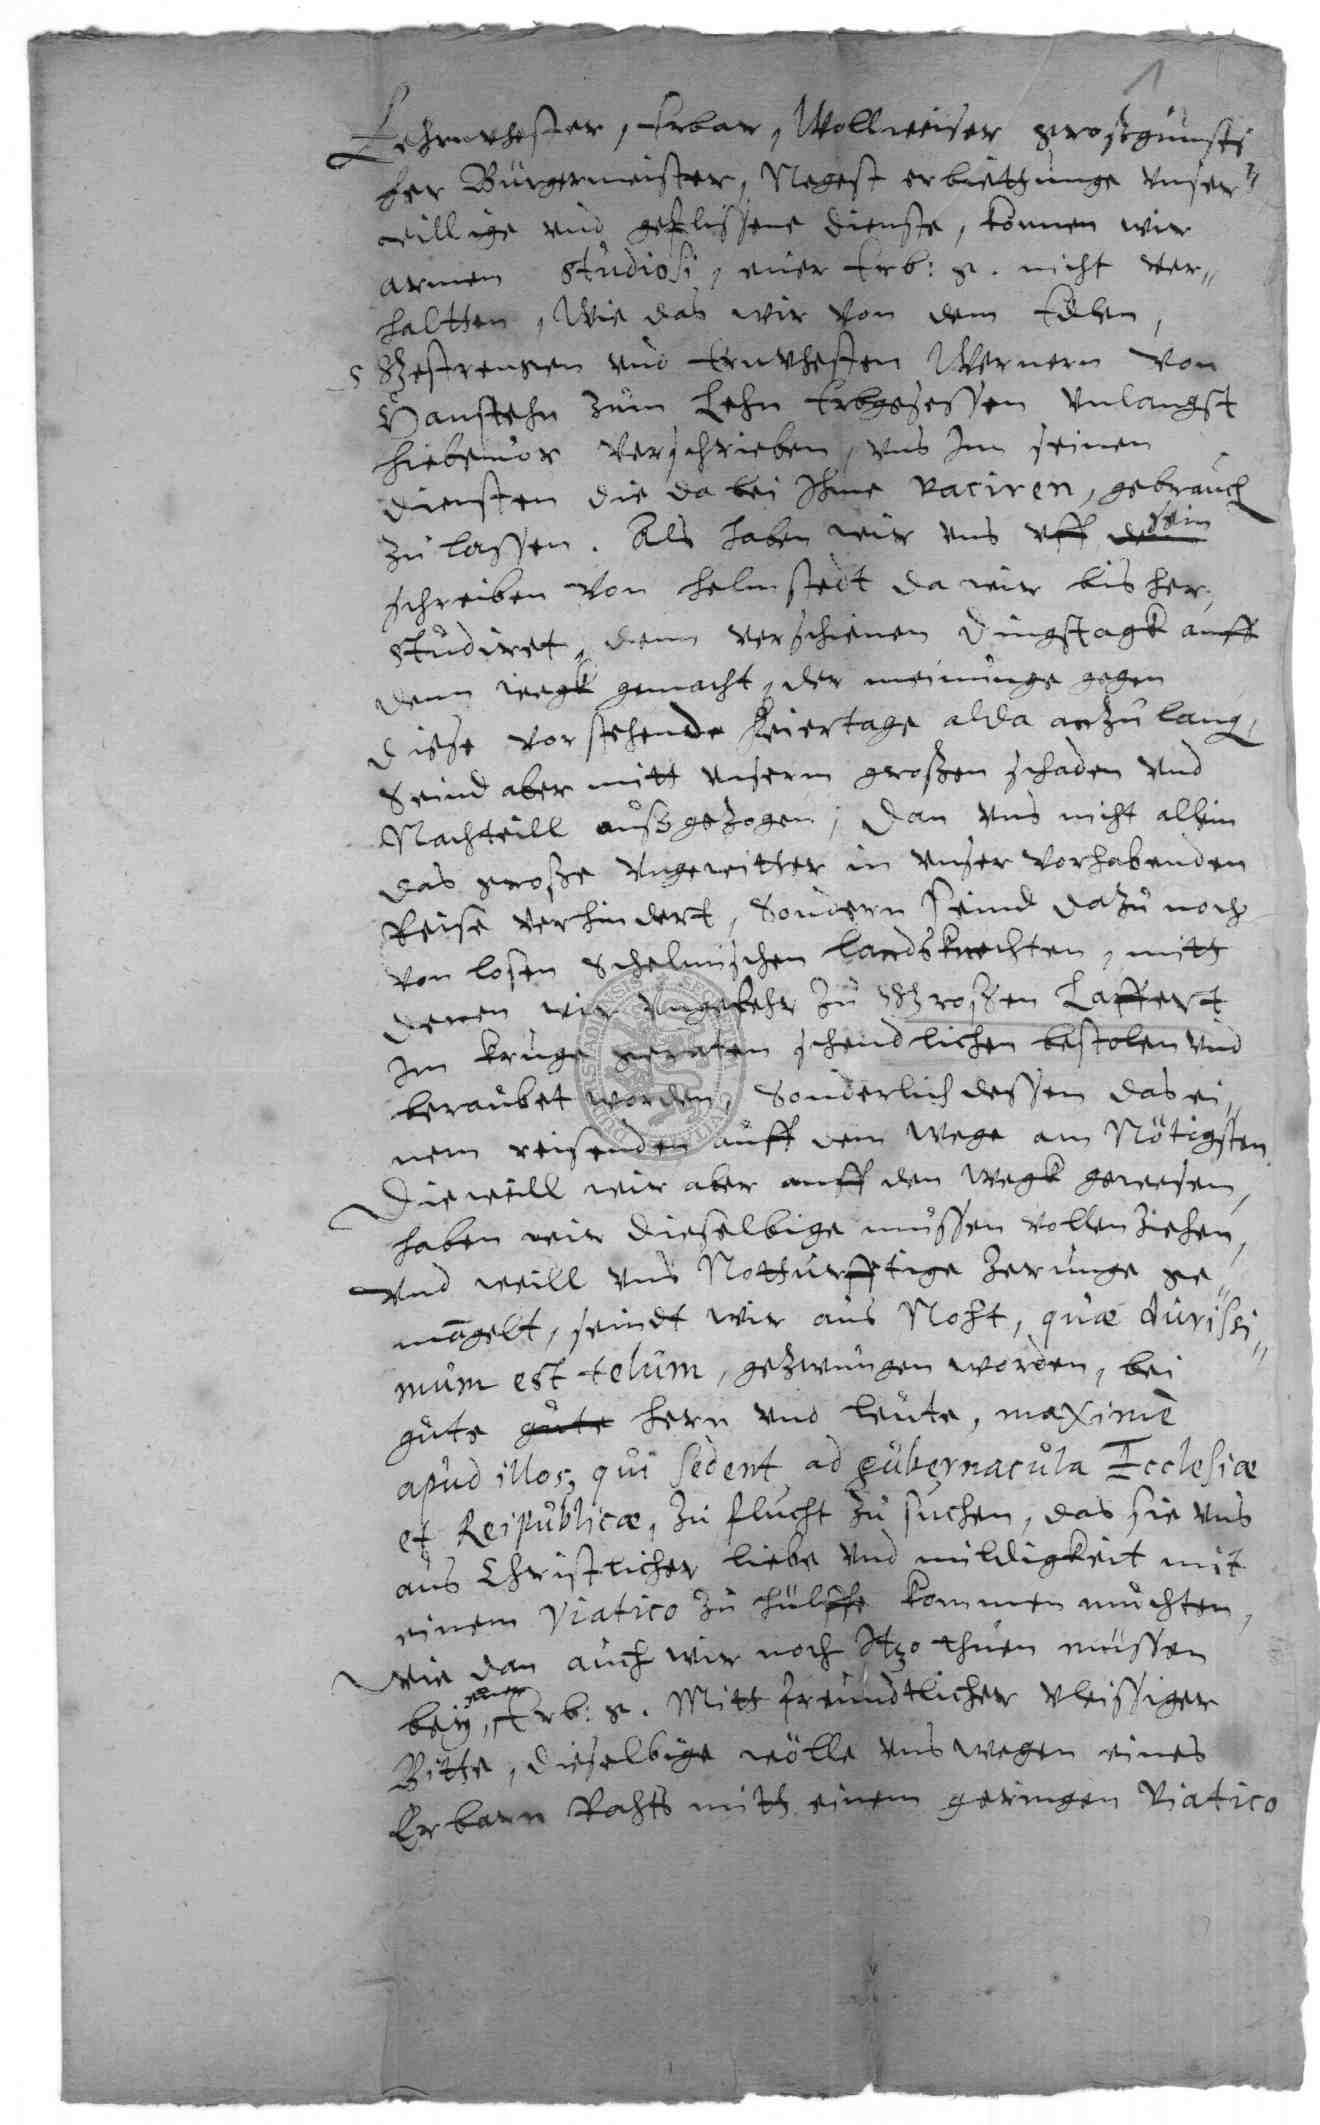 1
Ehrnvhester, Erbar, Wollweiser großgunsti
her Bürgermeister, Negest erbiettunge unser
willige und geflissene dienste, können wir
armen studiosi, euer Erb: g. nicht ver„
haltten, Wie das wir von dem Edlen,
Gestrengen und Ernvhesten Wernern von
Hanstehn zum Lehn Erbgesessen unlangst
hiebeuor verschrieben, uns Im seinen
diensten die da bei Ihme vaciren, gebrauch
zu lassen. Als haben wir uns uff sein
schreiben von helmstedt da wir bis her,
studiret, denn verschienen Dingstagk auff
denn wegk gemacht, der meinunge gegen
diese vorstehende Feiertage alda anzulang,
Seind aber mitt unserm großen schaden und
Nachteill außgezogen, Dan uns nicht allein
das große ungewitter in unser vorhabenden
Reise verhindert, Sondern seind dazu noch
von losen Schelmischen landsknechten, mitt
denen wir ungefehr zu Großen Laffert
Im kruge geraten schendlichen bestolen und
beraubet worden, Sonderlich dessen das ei„
nem reisenden auff dem Wege am Nötigsten
Dieweill wir aber auff den wegk gewesen,
haben wir dieselbige müssen vollenziehen,
Und weill uns Notturfftige zerunge ge„
mangelt, seindt wir aus Noht, quæ durissi„
mum est telum, gezwungen worden, bei
gute gute hern und leute, maximè
apud illos, qui sedent ad gubernacula Ecclesiæ
et Reipublicæ, zu flucht zu suchen, das sie uns
aus Christlicher liebe und mildigkeit mit
einem Viatico zu hülffe kommen muchten,
Wie dan auch wir noch Itzo thuen müssen
beÿ euer Erb: g. Mitt freundtlicher vleissiger
Bitte, dieselbige wölle uns wegen eines
Erbarn Rahts mitt einem geringen Viatico